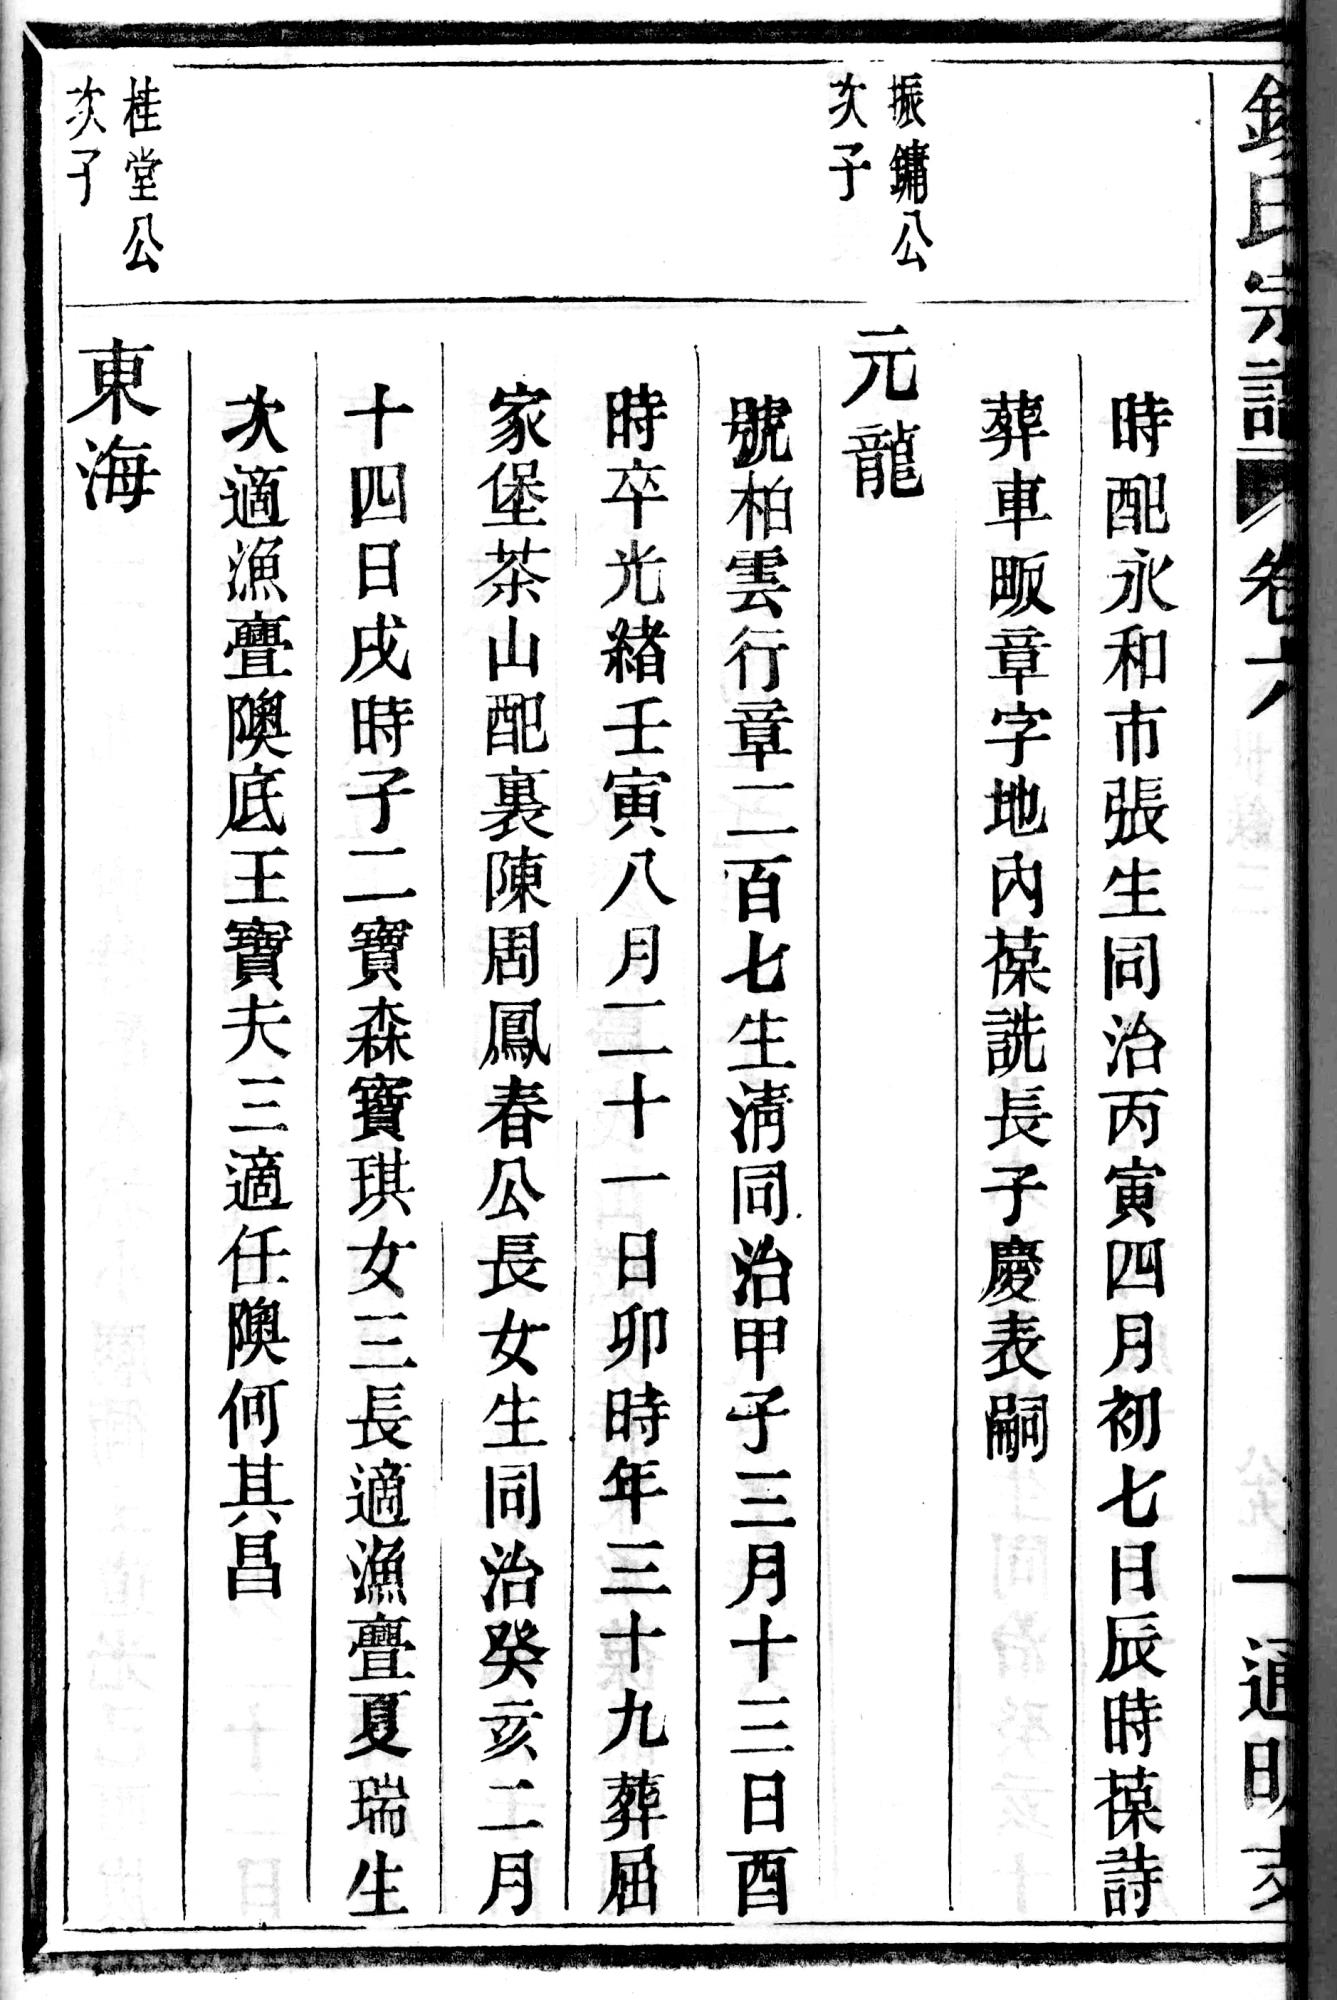 氏宗譜 卷六 一 通明
時配永和市張生同治丙寅四月初七日辰時葆詩
葬車畈章字地內葆詵長子慶表嗣
振鏞公
次子
元龍
號柏雲行章二百七生淸同治甲子三月十三日酉
時卒光緖壬寅八月二十一日卯時年三十九葬屈
家堡茶山配裏陳周鳳春公長女生同治癸亥二月
十四日戌時子二寶森寶琪女三長適漁亹夏瑞生
次適漁亹隩底王寶夫三適任隩何其昌
桂堂公
次子
東海